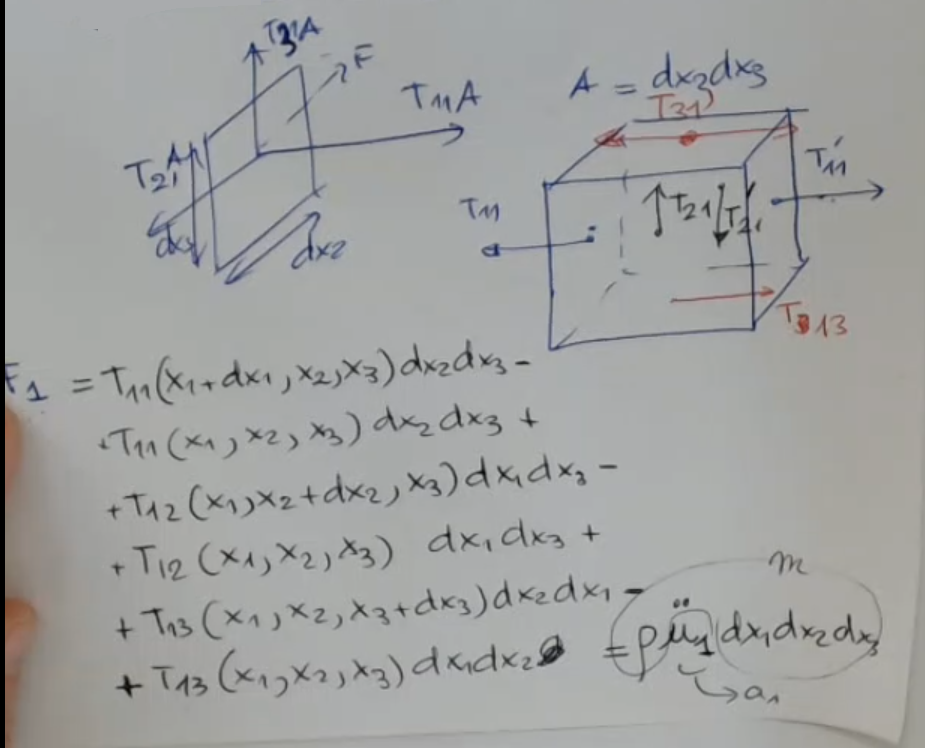 T₃₁A
F
T₁₁A
T₂₁A
dx₃
dx₂
A = dx₂dx₃
T₃₁
T₁₁'
T₁₁
T₂₁
T₂₁'
T₁₃
F₁ = T₁₁(x₁+dx₁,x₂,x₃)dx₂dx₃ -
+T₁₁(x₁,x₂,x₃)dx₂dx₃ +
+T₁₂(x₁,x₂+dx₂,x₃)dx₁dx₃ -
+T₁₂(x₁,x₂,x₃) dx₁dx₃ +
+T₁₃(x₁,x₂,x₃+dx₃)dx₂dx₁ -
+T₁₃(x₁,x₂,x₃)dx₁dx₂ = ρü₁dx₁dx₂dx₃
m
a₁